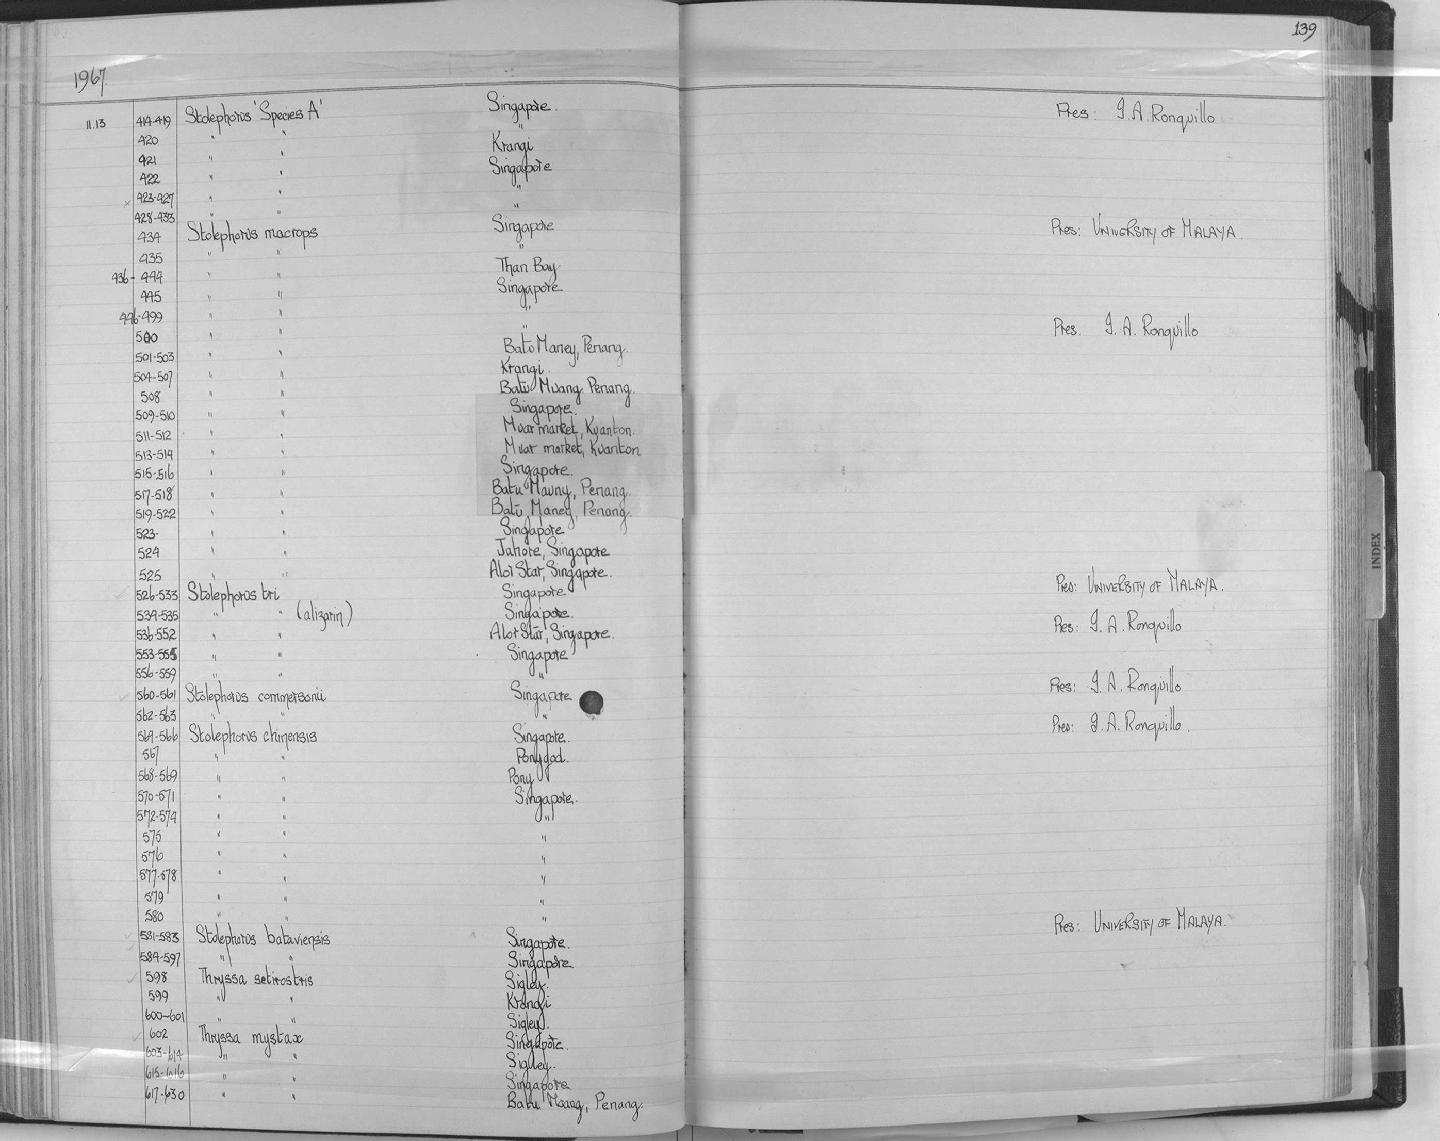 139
1967.
11.13 414-419 Stolephorus 'Species A' Singapore. Pres: I. A. Ronquillo
420 " " "
421 " " Krangi
422 " " Singapore
423-427 " " "
428-433 " " "
434 Stolephorus macrops Singapore Pres: UNIVERSITY OF MALAYA.
435 " " "
436-444 " " Than Bay
445 " " Singapore
446-499 " " "
500 " " " Pres. I. A. Ronquillo
501-503 " " Batu Maney, Penang.
504-507 " " Krangi.
508 " " Batu Muang Penang.
509-510 " " Singapore.
511-512 " " Muar market, Kuanton.
513-514 " " Muar market, Kuanton
515-516 " " Singapore.
517-518 " " Batu Mauny, Penang.
519-522 " " Batu Maney, Penang.
523- " " Singapore
524 " " Jahore, Singapore
525 " " Alor Star, Singapore.
526-533 Stolephorus tri Singapore Pres: UNIVERSITY OF MALAYA.
534-535 " " (alizarin) Singapore.
536-552 " " Alor Star, Singapore. Pres: I. A. Ronquillo
553-555 " " Singapore
556-559 " " "
560-561 Stolephorus commersonii Singapore Pres: I. A. Ronquillo
562-563 " " "
564-566 Stolephorus chinensis Singapore. Pres: I. A. Ronquillo.
567 " " Ponygod.
568-569 " " Pony
570-571 " " Singapore.
572-574 " " "
575 " " "
576 " " "
577-578 " " "
579 " " "
580 " " "
581-583 Stolephorus bataviensis Singapore. Pres: UNIVERSITY OF MALAYA.
584-597 " " Singapore
598 Thryssa setirostris Sigley.
599 " " Krangi
600-601 " " Sigley.
602 Thryssa mystax Singapore.
603-614 " " Sigley.
615-616 " " Singapore
617-630 " " Batu Moang, Penang.
INDEX